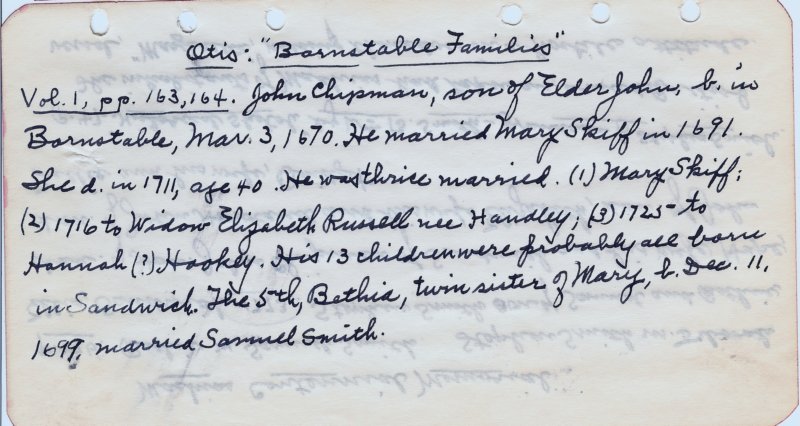 Otis: "Barnstable Families"
Vol. 1, pp. 163, 164. John Chipman, son of Elder John, b. in
Barnstable, Mar. 3, 1670. He married Mary Skiff in 1691.
She d. in 1711, age 40. He was thrice married. (1) Mary Skiff;
(2) 1716 to Widow Elizabeth Russell nee Handley; (3) 1725 to
Hannah (?) Hookey. His 13 children were probably all born
in Sandwich. The 5th, Bathia, twin sister of Mary, b. Dec. 11,
1699, married Samuel Smith.